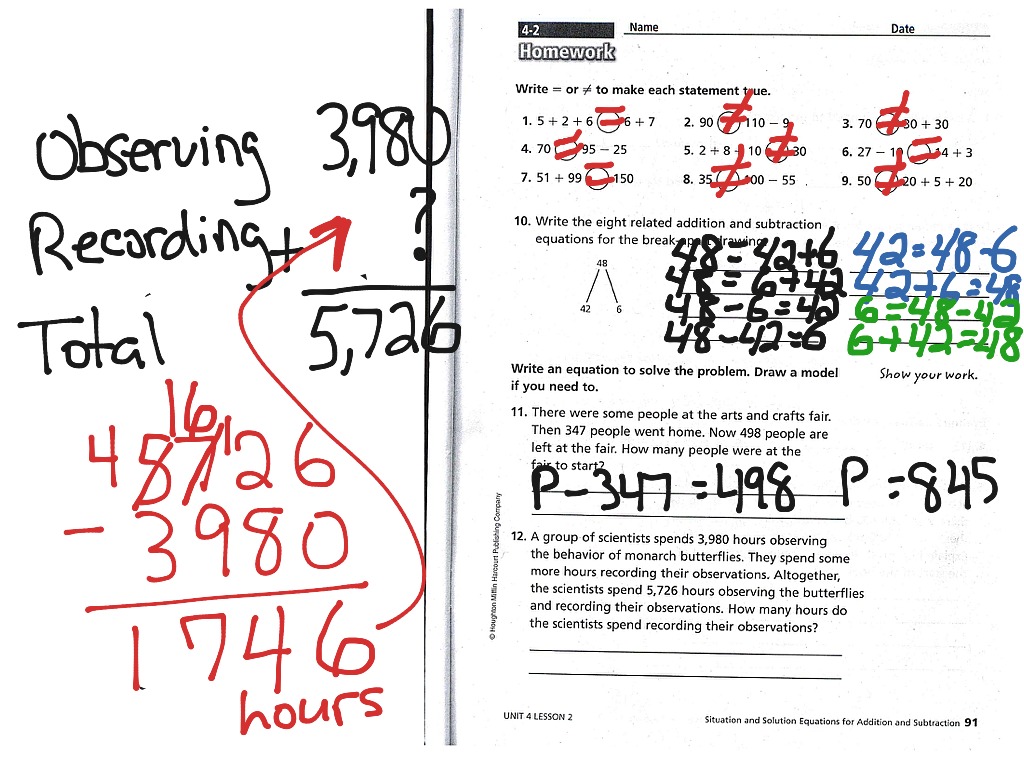 Observing 3,980
Recording + ?
Total 5,726
16
4 8 7 12 6
- 3 9 8 0
1 7 4 6
hours
4-2 Name Date
Homework
Write = or ≠ to make each statement true.
1. 5 + 2 + 6 = 6 + 7 2. 90 ≠ 110 − 9 3. 70 ≠ 30 + 30
4. 70 = 95 − 25 5. 2 + 8 + 10 ≠ 30 6. 27 − 10 = 14 + 3
7. 51 + 99 = 150 8. 35 ≠ 100 − 55 9. 50 ≠ 20 + 5 + 20
10. Write the eight related addition and subtraction
equations for the break-apart drawing.
48
42 6
48 = 42+6 42 = 48-6
48 = 6+42 42+6=48
48 - 6 = 42 6 = 48-42
48 - 42 = 6 6+42=48
Write an equation to solve the problem. Draw a model
if you need to.
Show your work.
11. There were some people at the arts and crafts fair.
Then 347 people went home. Now 498 people are
left at the fair. How many people were at the
fair to start?
P - 347 = 498 P = 845
12. A group of scientists spends 3,980 hours observing
the behavior of monarch butterflies. They spend some
more hours recording their observations. Altogether,
the scientists spend 5,726 hours observing the butterflies
and recording their observations. How many hours do
the scientists spend recording their observations?
© Houghton Mifflin Harcourt Publishing Company
UNIT 4 LESSON 2 Situation and Solution Equations for Addition and Subtraction 91